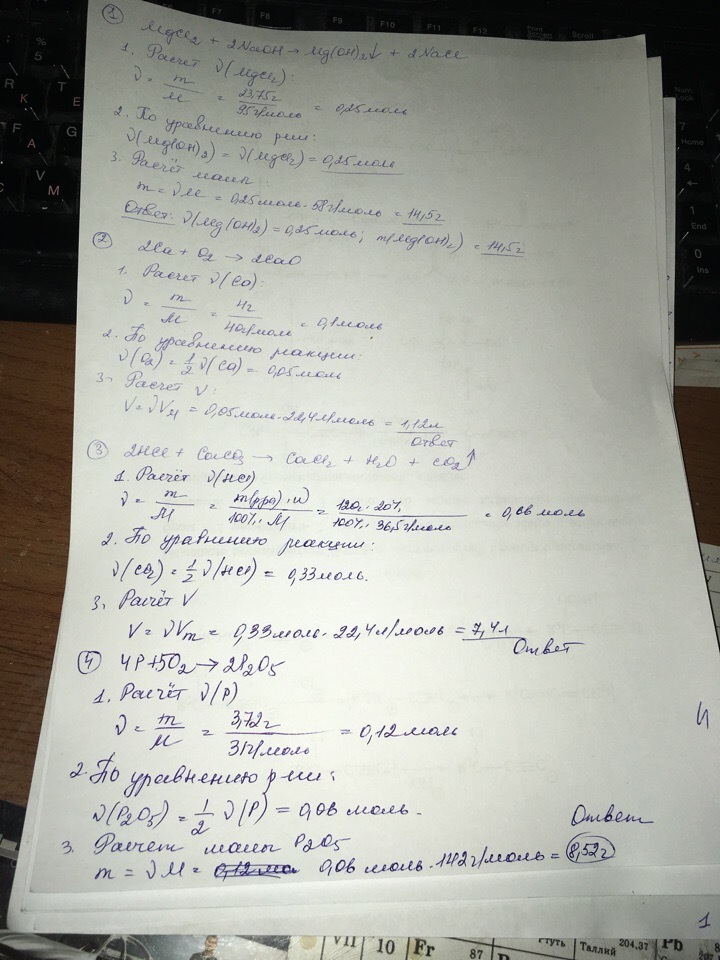 1
MgCl2 + 2NaOH → Mg(OH)2↓ + 2NaCl
1. Расчет ν(MgCl2):
ν = m/M = 23,75г/95г/моль = 0,25моль
2. По уравнению р-ции:
ν(Mg(OH)2) = ν(MgCl2) = 0,25моль
3. Расчёт массы:
m = νM = 0,25моль·58г/моль = 14,5г
Ответ: ν(Mg(OH)2) = 0,25моль; m(Mg(OH)2) = 14,5г
2
2Ca + O2 → 2CaO
1. Расчет ν(Ca):
ν = m/M = 4г/40г/моль = 0,1моль
2. По уравнению реакции:
ν(O2) = 1/2 ν(Ca) = 0,05моль
3. Расчет V:
V = νVM = 0,05моль·22,4л/моль = 1,12л
Ответ
3 2HCl + CaCO3 → CaCl2 + H2O + CO2↑
1. Расчёт ν(HCl)
ν = m/M = m(рра)·ω/100%·M = 120г·20%/100%·36,5г/моль = 0,66 моль
2. По уравнению реакции:
ν(CO2) = 1/2 ν(HCl) = 0,33моль.
3. Расчёт V
V = νVm = 0,33моль·22,4л/моль = 7,4л
Ответ
4 4P+5O2→2P2O5
1. Расчёт ν(P)
ν = m/M = 3,72г/31г/моль = 0,12моль
2. По уравнению р-ции:
ν(P2O5) = 1/2 ν(P) = 0,06 моль.
Ответ
3. Расчет массы P2O5
m = νM = 0,06 моль·142г/моль = 8,52г
1
VII 10 Fr 87
Таллий 204,37 Pb